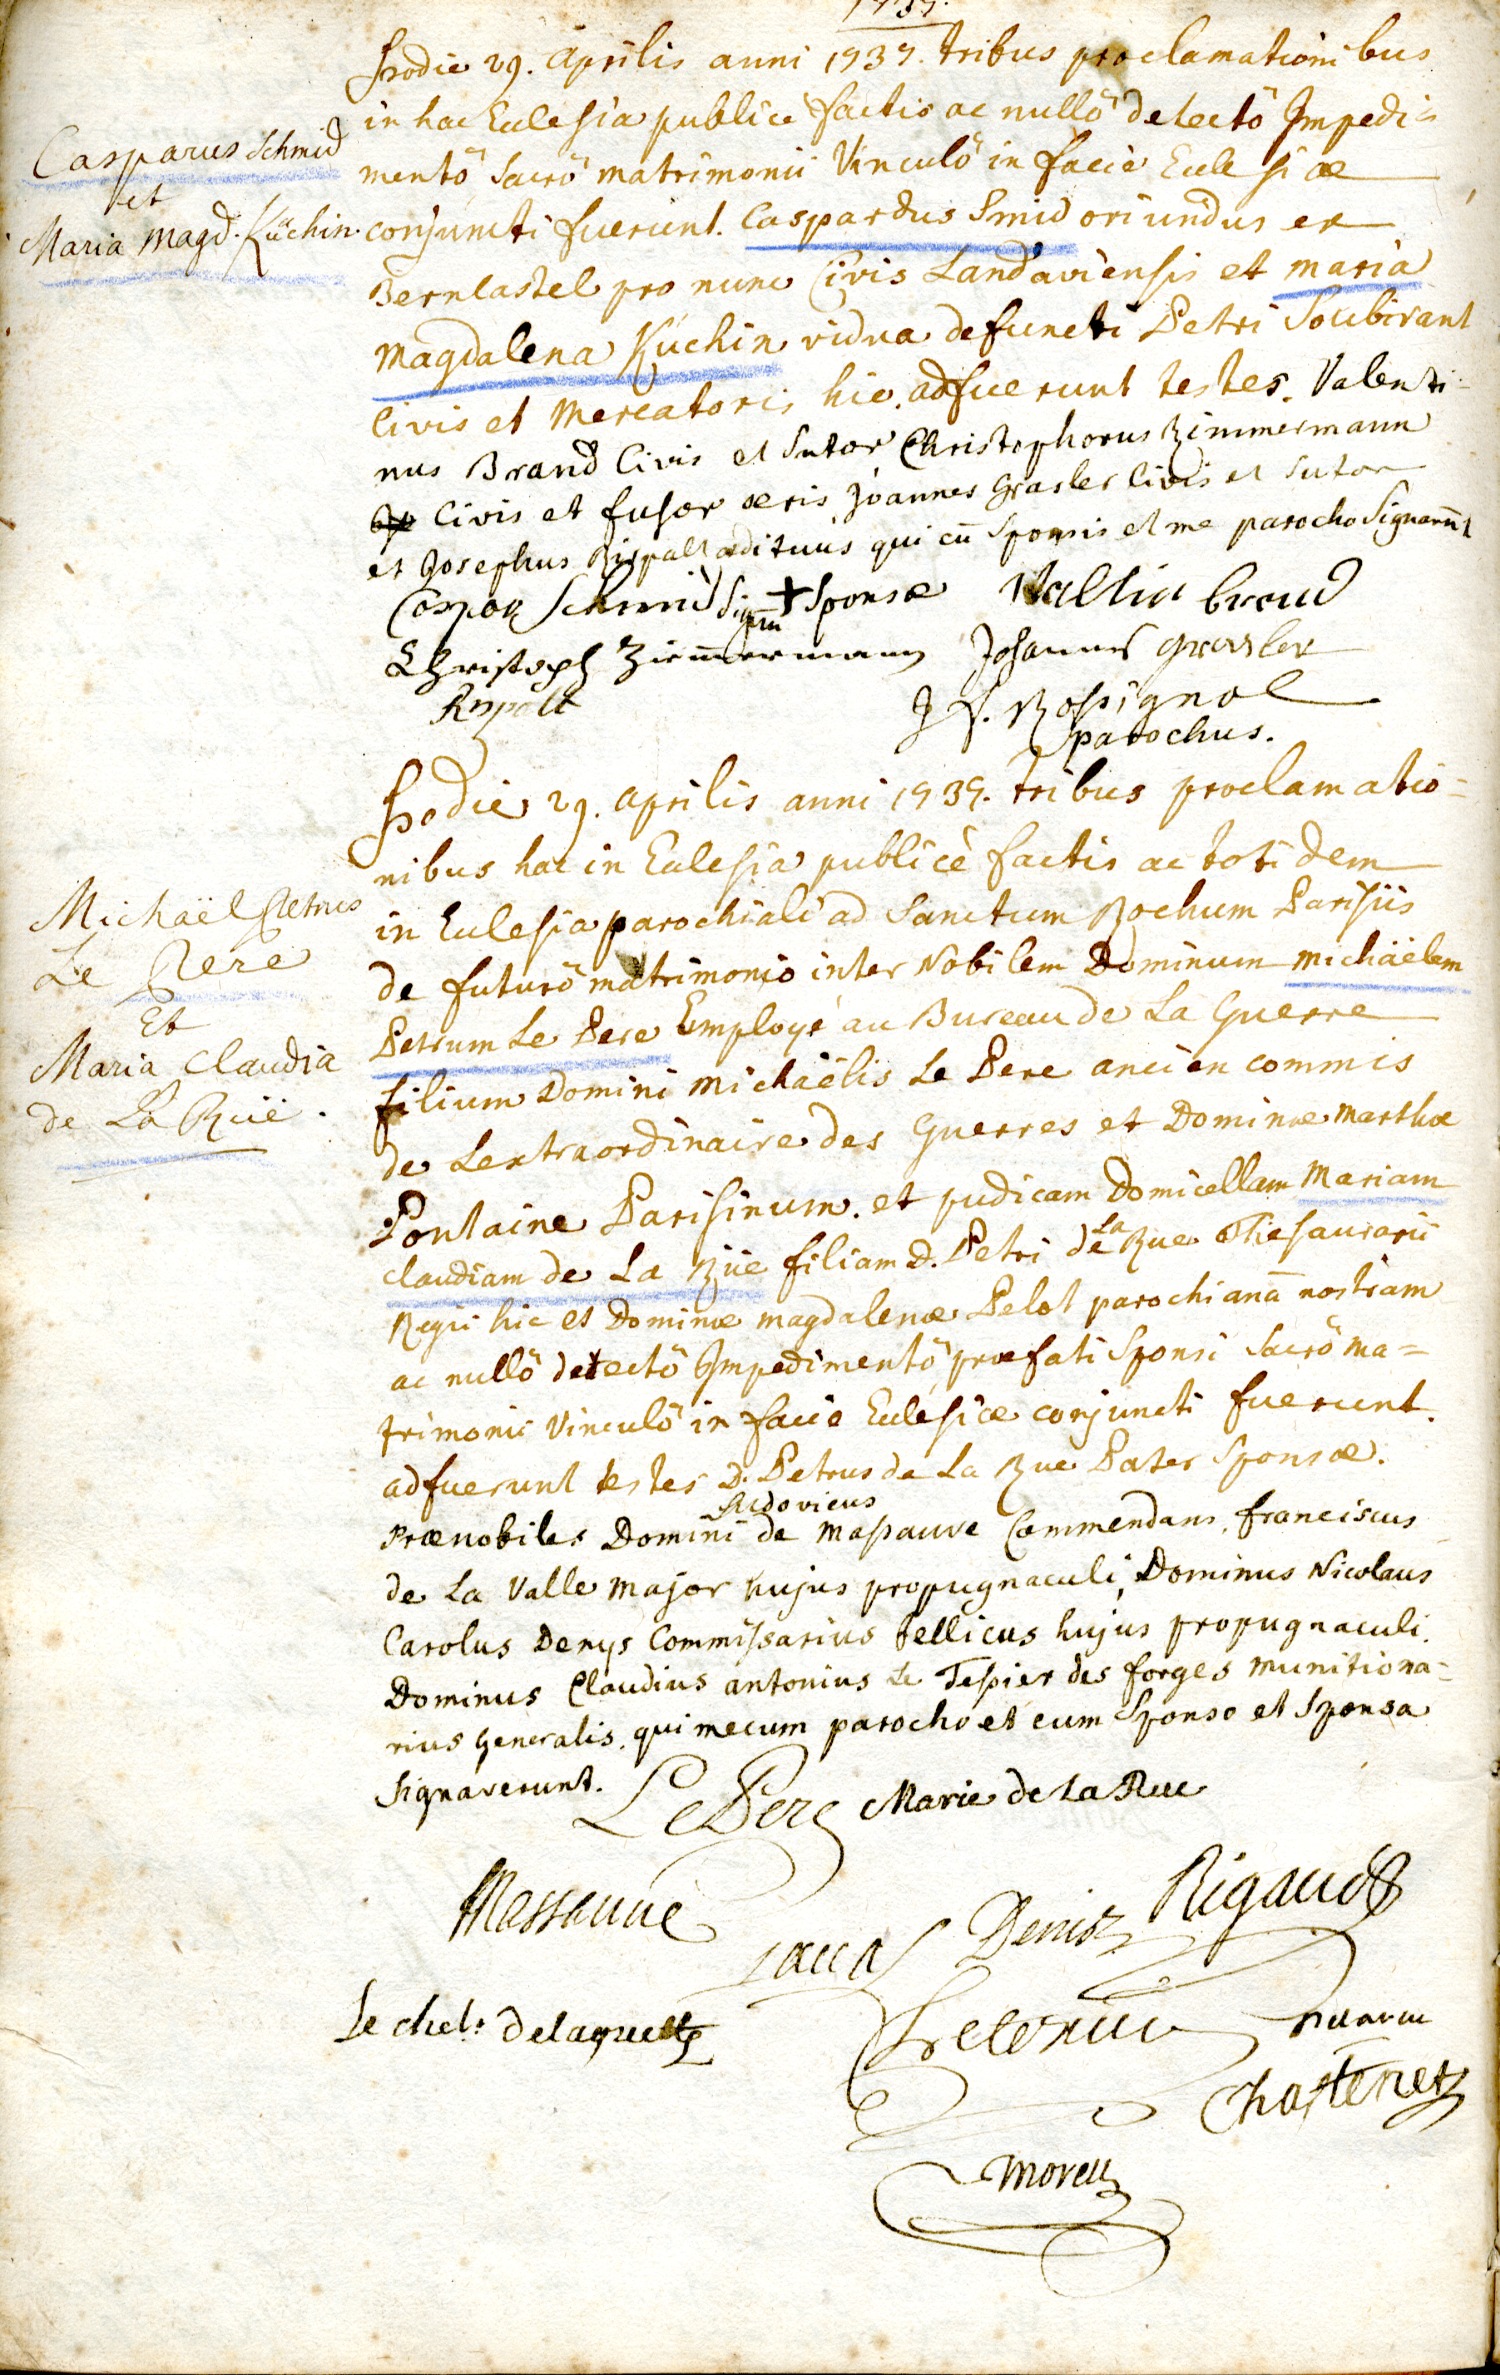 1739.
Hodie 29. Aprilis anni 1739. tribus proclamationibus
in hac Eclesia publice factis ac nullô detectô Impedi=
mentô Sacrô matrimonii Vinculô in facie Eclesiæ
conjuncti fuerunt. Caspardus Smid oriundus ex
Bernkastel pro nunc Civis Landaviensis et maria
Magdalena Küchin vidua defuncti Petri Soubirant
Civis et Mercatoris hic. adfuerunt testes. Valenti-
nus Brand Civis et Sutor Christophorus Zimmermann
Civis et fusor æris Joannes Grasler Civis et Sutor
et Josephus Rispalt ædituus qui cū Sponsis et me parocho Signarūt
Caspar Schmid Signm + Sponsæ Valltin brand
Christoph Zim̄ermann Johannes grasler
Rispalt
J f. Rossignol
parochus.
Casparus Schmid
et
Maria Magd. Küchin.
Hodie 29. aprilis anni 1739. tribus proclamatio=
nibus hac in Ecclesia publicè factis ac totidem
in Eclesia parochiali ad Sanctum Rochum Parisiis
de futurô matrimonio inter Nobilem Dominum michäelem
Petrum Le Pere Employé au Bureau de La Guerre
filium Domini Michaëlis Le Pere ancien commis
de Lextraordinaire des Guerres et Dominæ Marthæ
Pontaine Parisinum. et pudicam Domicellam Mariam
Claudiam de La Rüe filiam D. Petri de La Rue Thesaurarii
Regii hic et Dominæ magdalenæ Pelot parochianā nostram
ac nullô detectô Impedimentô præfati Sponsi Sacrô ma=
trimonii Vinculô in facie Eclesiæ conjuncti fuerunt.
adfuerunt testes D. Petrus de La Rue Pater Sponsæ.
Prænobiles Domini Ludovicus de Massauve Commendans, franciscus
de La Valle Major hujus propugnaculi, Dominus Nicolaus
Carolus Denys Commissarius bellicus hujus propugnaculi.
Dominus Claudius antonius Le Tessier des forges munitiona=
rius Generalis. qui mecum parocho et cum Sponso et Sponsa
Signaverunt. Le Pere Marie de La Rue
Michaël Petrus
Le Pere
Et
Maria Claudia
de La Rüe.
Massauve
Denis Rigaud
Le chelr. Delaquette
Chastenet
Moreu